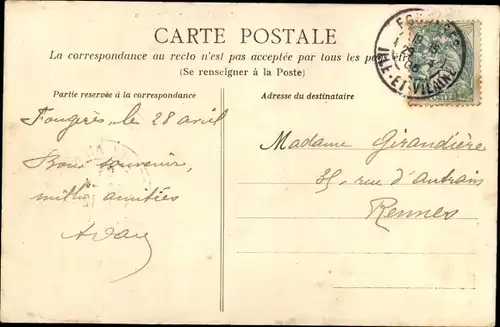 CARTE POSTALE
La correspondance au recto n'est pas acceptée par tous les pays
(Se renseigner à la Poste)
Partie reservée à la correspondance
Adresse du destinataire
Fougères, le 28 avril
Bons souvenirs,
mille amitiés
Madame Girandière
35, rue d'Antrain
Rennes
FOUGÈRES
ILLE-ET-VILAINE
POSTES